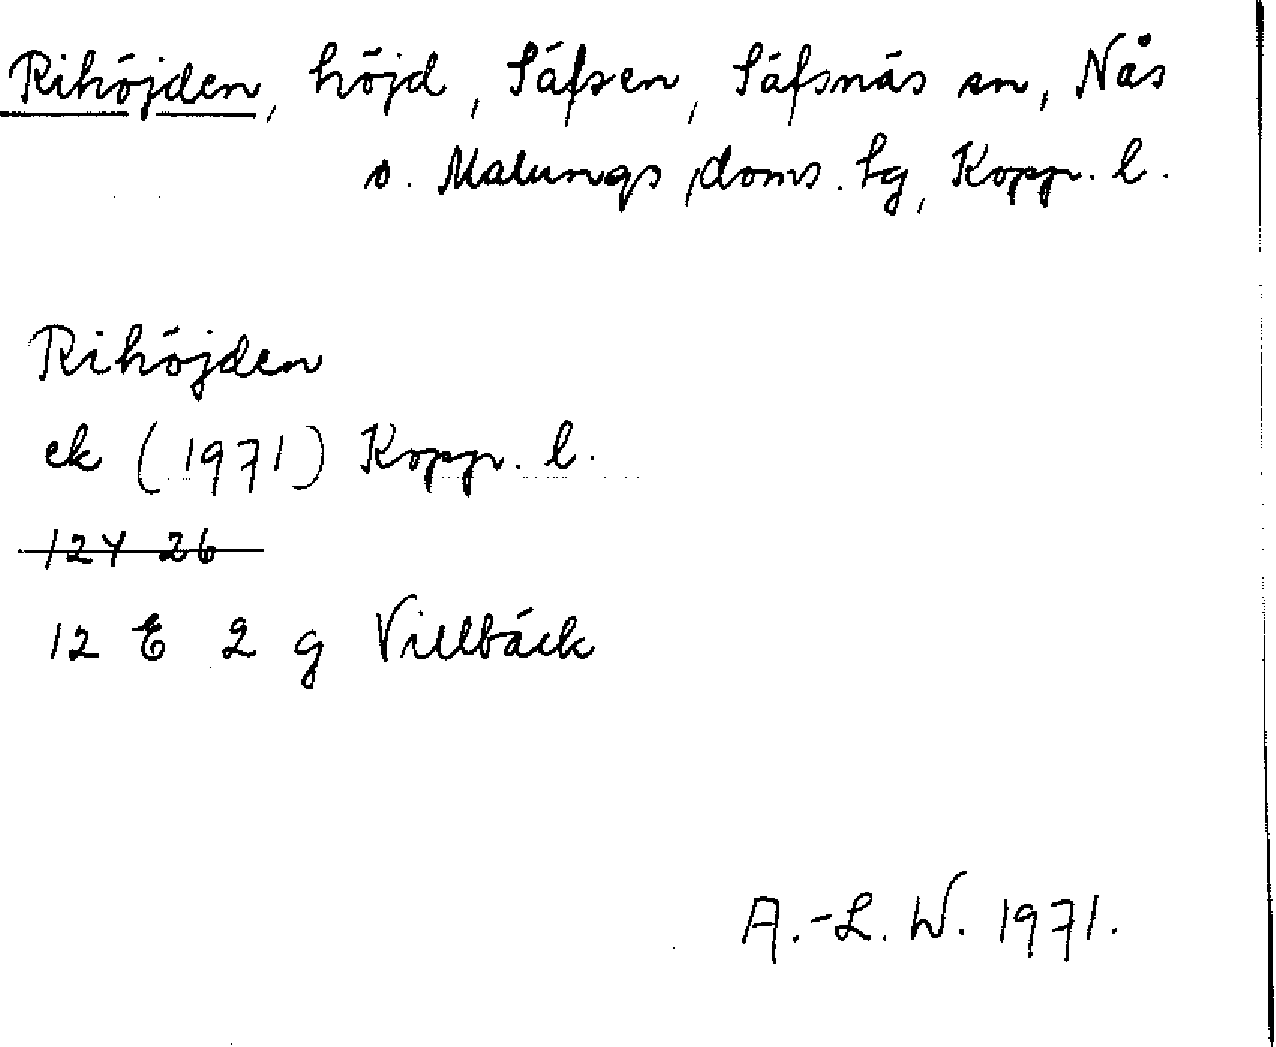 Rihöjden, höjd, Säfsen, Säfsnäs sn, Nås
o. Malungs doms. tg, Koppr. l.
Rihöjden
ek (1971) Koppr. l.
12Y 26
12 E 2 g Villbäck
A.-L. W. 1971.